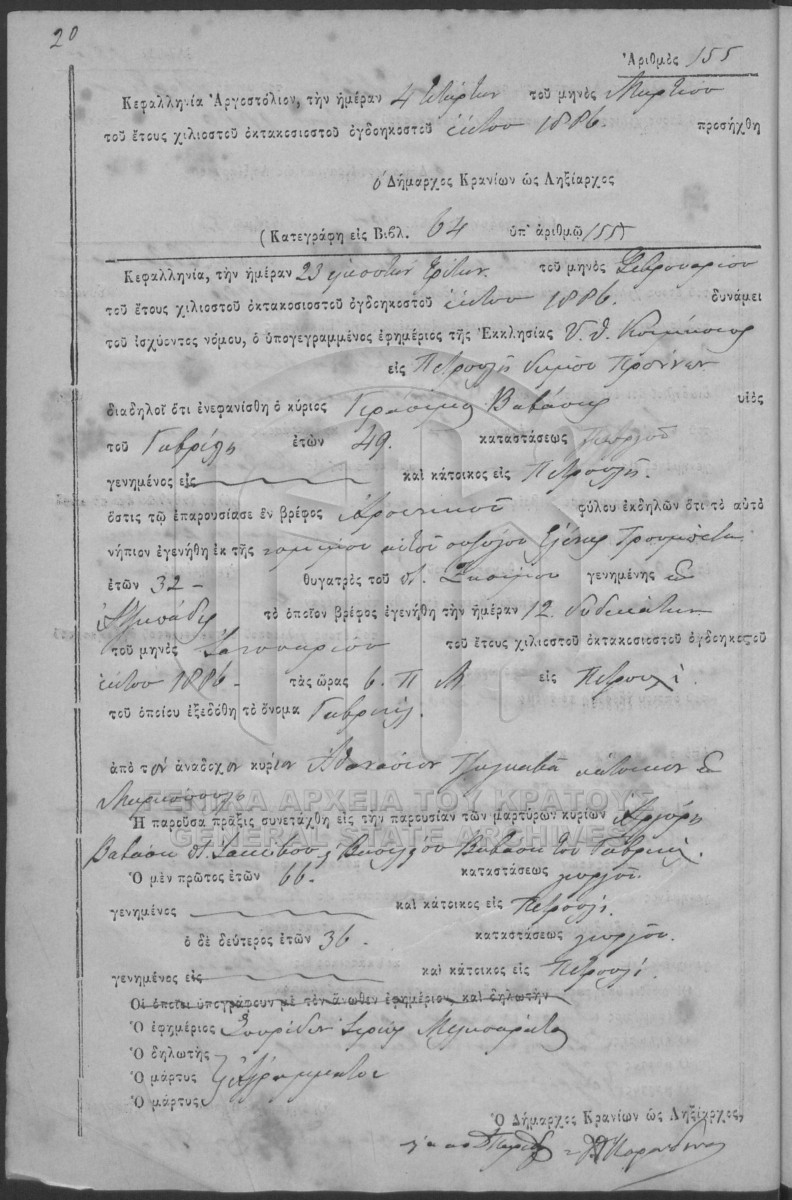 20
Ἀριθμὸς 155
Κεφαλληνία Ἀργοστόλιον, τὴν ἡμέραν 4 τετάρτην τοῦ μηνὸς Μαρτίου
τοῦ ἔτους χιλιοστοῦ ὀκτακοσιοστοῦ ὀγδοηκοστοῦ ἕκτου 1886 προσήχθη
ὁ Δήμαρχος Κρανίων ὡς Ληξίαρχος
(Κατεγράφη εἰς Βιβλ. 64 ὑπ' ἀριθμῷ 155)
Κεφαλληνία, τὴν ἡμέραν 23 εἰκοστὴν τρίτην τοῦ μηνὸς Φεβρουαρίου
τοῦ ἔτους χιλιοστοῦ ὀκτακοσιοστοῦ ὀγδοηκοστοῦ ἕκτου 1886. δυνάμει
τοῦ ἰσχύοντος νόμου, ὁ ὑπογεγραμμένος ἐφημέριος τῆς Ἐκκλησίας Υ. Θ. Κοιμήσεως
εἰς Πετρουλῆ δήμου
διαδηλοῖ ὅτι ἐνεφανίσθη ὁ κύριος Γεράσιμος υἱὸς
τοῦ Γαβρίλη ἐτῶν 49. καταστάσεως γεωργοῦ
γενημένος εἰς καὶ κάτοικος εἰς Πετρουλῆ.
ὅστις τῷ ἐπαρουσίασε ἓν βρέφος Ἀρσενικοῦ φύλου ἐκδηλῶν ὅτι τὸ αὐτὸ
νήπιον ἐγενήθη ἐκ τῆς νομίμου αὐτοῦ συζύγου Ἑλένης
ἐτῶν 32 - θυγατρὸς τοῦ γενημένης
τὸ ὁποῖον βρέφος ἐγενήθη τὴν ἡμέραν 12. δωδεκάτην
τοῦ μηνὸς Ἰαννουαρίου τοῦ ἔτους χιλιοστοῦ ὀκτακοσιοστοῦ ὀγδοηκοστοῦ
ἕκτου 1886 - τὰς ὥρας 6. Π Μ εἰς Πετρουλῆ.
τοῦ ὁποίου ἐξεδόθη τὸ ὄνομα Γαβριήλ.
ἀπὸ τὸν ἀνάδοχον κύριον Ἀθανάσιον κάτοικον
ΓΕΝΙΚΑ ΑΡΧΕΙΑ ΤΟΥ ΚΡΑΤΟΥΣ
Ἡ παροῦσα πρᾶξις συνετάχθη εἰς τὴν παρουσίαν τῶν μαρτύρων κυρίων
GENERAL STATE ARCHIVES
Βασιλείου τοῦ Γαβριήλ.
Ὁ μὲν πρῶτος ἐτῶν 66 - καταστάσεως γεωργοῦ.
γενημένος καὶ κάτοικος εἰς Πετρουλῆ.
ὁ δὲ δεύτερος ἐτῶν 36 - καταστάσεως γεωργοῦ.
γενημένος εἰς καὶ κάτοικος εἰς Πετρουλῆ.
Οἱ ὁποῖοι ὑπογράφουν μὲ τὸν ἄνωθεν ἐφημέριον, καὶ δηλωτὴν
Ὁ ἐφημέριος Σπυρίδων Ἱερεὺς
Ὁ δηλωτὴς
Ὁ μάρτυς Ἀγράμματοι
Ὁ μάρτυς
Ὁ Δήμαρχος Κρανίων ὡς Ληξίαρχος,